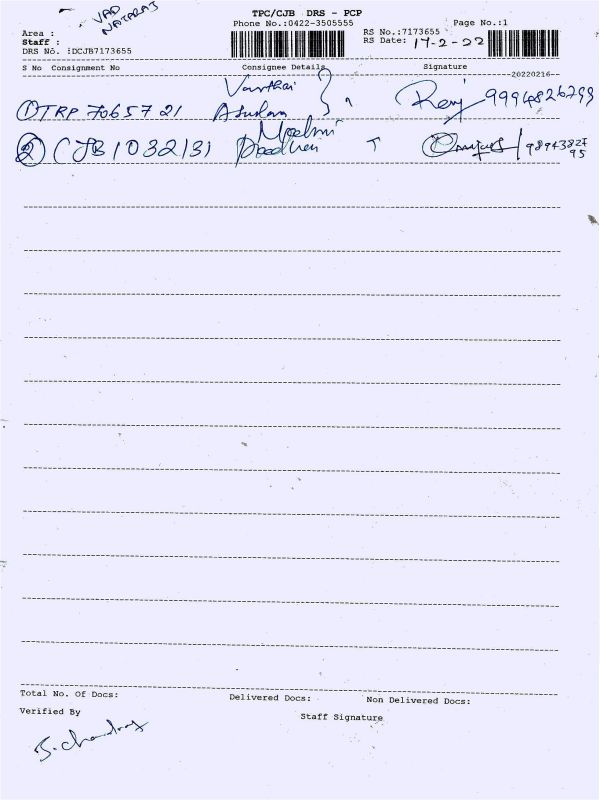 VAD
NATARAJ
TPC/CJB DRS - PCP
Phone No.:0422-3505555
Page No.:1
Area :
Staff :
DRS No. :DCJB7173655
RS No.:7173655
RS Date: 17-2-22
S No Consignment No Consignee Details Signature
20220216
① TRP 7065721 Varthai 9994826299
② CJB 1032131 98943827
95
Total No. Of Docs: Delivered Docs: Non Delivered Docs:
Verified By
Staff Signature